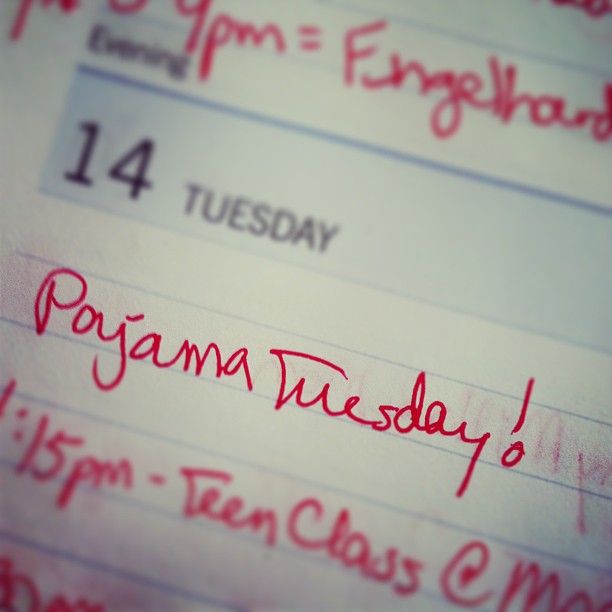 9pm = Engelhard
Evening
14 TUESDAY
Pajama Tuesday!
1:15pm - Teen Class @